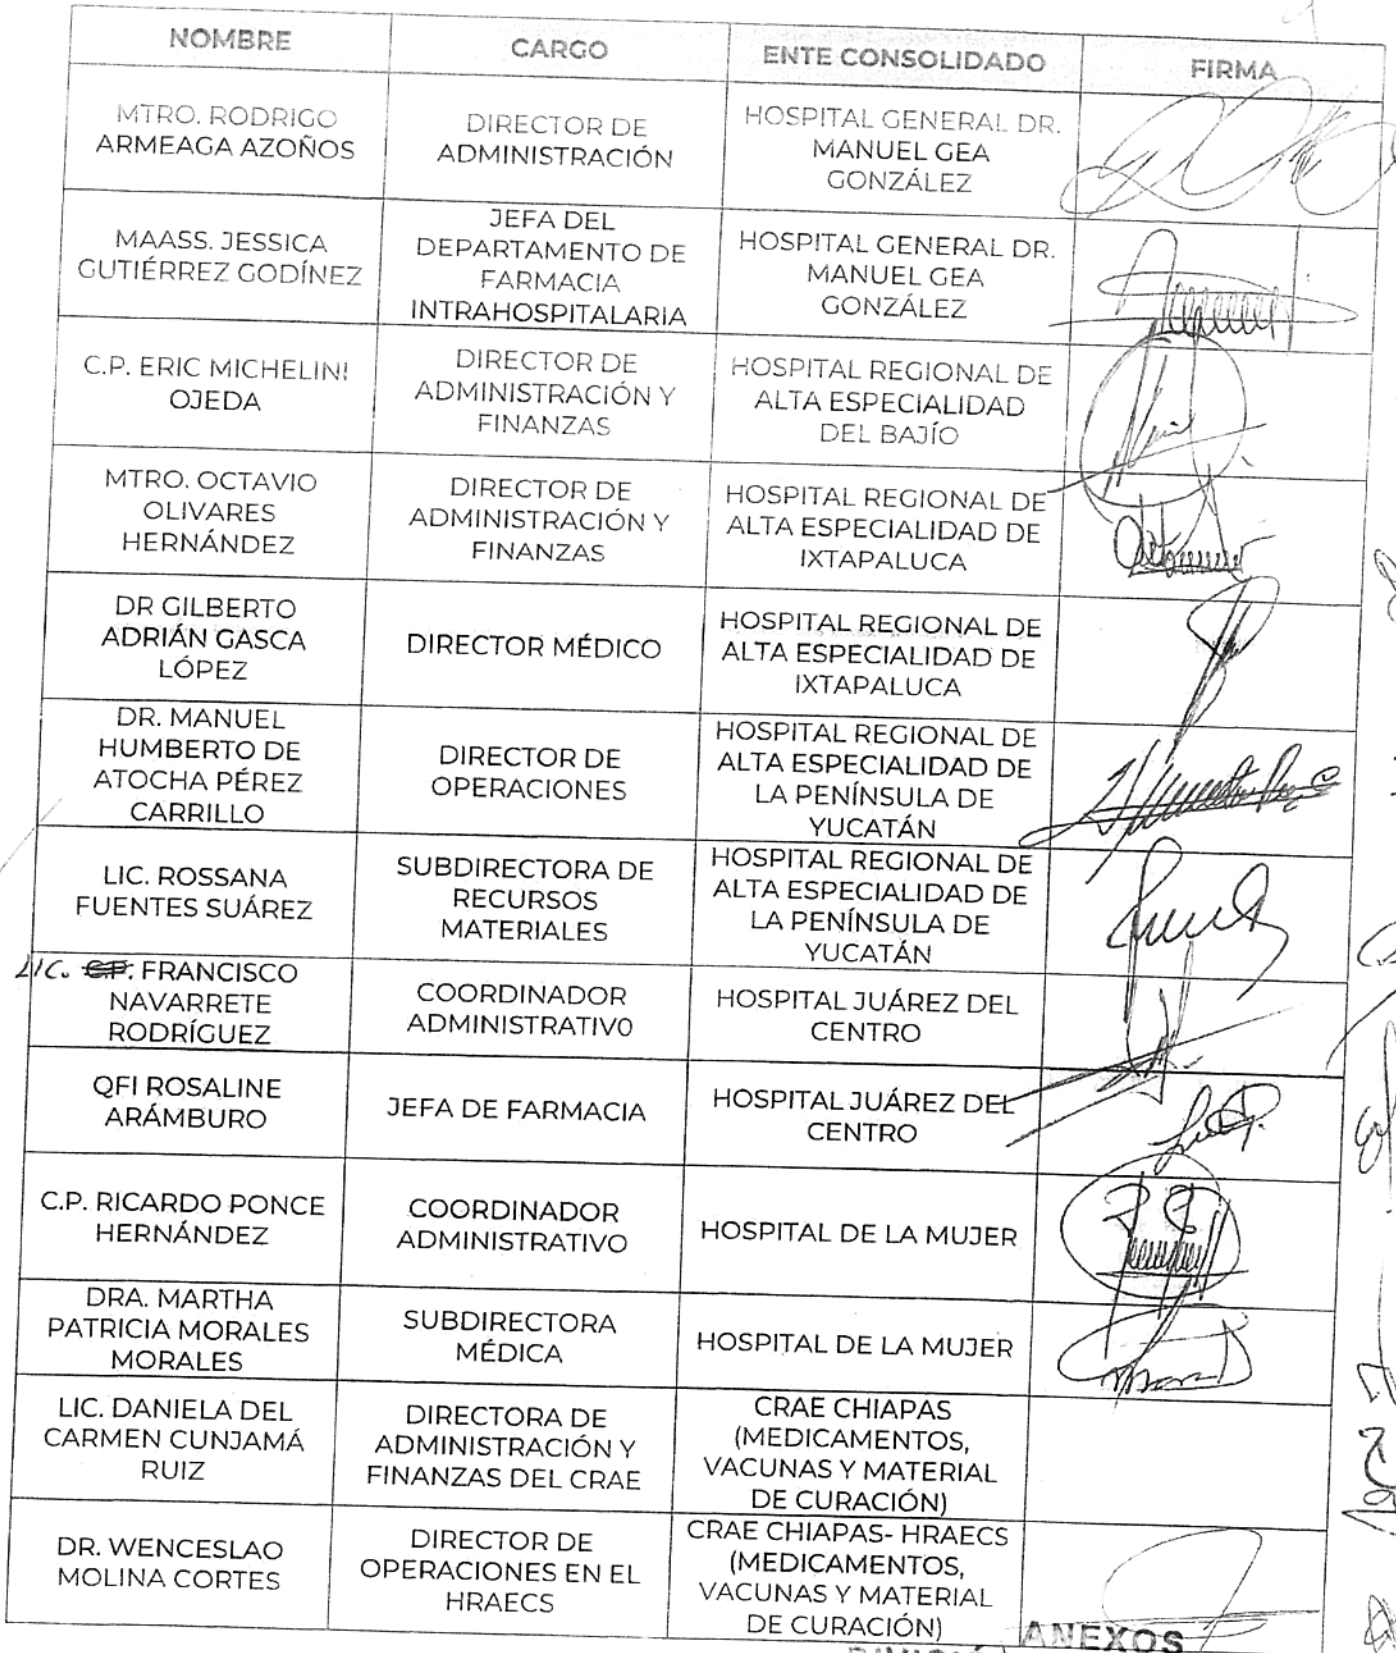 NOMBRE CARGO ENTE CONSOLIDADO FIRMA
MTRO. RODRIGO
ARMEAGA AZOÑOS
DIRECTOR DE
ADMINISTRACIÓN
HOSPITAL GENERAL DR.
MANUEL GEA
GONZÁLEZ
MAASS. JESSICA
GUTIÉRREZ GODÍNEZ
JEFA DEL
DEPARTAMENTO DE
FARMACIA
INTRAHOSPITALARIA
HOSPITAL GENERAL DR.
MANUEL GEA
GONZÁLEZ
C.P. ERIC MICHELINI
OJEDA
DIRECTOR DE
ADMINISTRACIÓN Y
FINANZAS
HOSPITAL REGIONAL DE
ALTA ESPECIALIDAD
DEL BAJÍO
MTRO. OCTAVIO
OLIVARES
HERNÁNDEZ
DIRECTOR DE
ADMINISTRACIÓN Y
FINANZAS
HOSPITAL REGIONAL DE
ALTA ESPECIALIDAD DE
IXTAPALUCA
DR GILBERTO
ADRIÁN GASCA
LÓPEZ
DIRECTOR MÉDICO
HOSPITAL REGIONAL DE
ALTA ESPECIALIDAD DE
IXTAPALUCA
DR. MANUEL
HUMBERTO DE
ATOCHA PÉREZ
CARRILLO
DIRECTOR DE
OPERACIONES
HOSPITAL REGIONAL DE
ALTA ESPECIALIDAD DE
LA PENÍNSULA DE
YUCATÁN
LIC. ROSSANA
FUENTES SUÁREZ
SUBDIRECTORA DE
RECURSOS
MATERIALES
HOSPITAL REGIONAL DE
ALTA ESPECIALIDAD DE
LA PENÍNSULA DE
YUCATÁN
LIC. C.P. FRANCISCO
NAVARRETE
RODRÍGUEZ
COORDINADOR
ADMINISTRATIV0
HOSPITAL JUÁREZ DEL
CENTRO
QFI ROSALINE
ARÁMBURO
JEFA DE FARMACIA
HOSPITAL JUÁREZ DEL
CENTRO
C.P. RICARDO PONCE
HERNÁNDEZ
COORDINADOR
ADMINISTRATIVO
HOSPITAL DE LA MUJER
DRA. MARTHA
PATRICIA MORALES
MORALES
SUBDIRECTORA
MÉDICA
HOSPITAL DE LA MUJER
LIC. DANIELA DEL
CARMEN CUNJAMÁ
RUIZ
DIRECTORA DE
ADMINISTRACIÓN Y
FINANZAS DEL CRAE
CRAE CHIAPAS
(MEDICAMENTOS,
VACUNAS Y MATERIAL
DE CURACIÓN)
DR. WENCESLAO
MOLINA CORTES
DIRECTOR DE
OPERACIONES EN EL
HRAECS
CRAE CHIAPAS- HRAECS
(MEDICAMENTOS,
VACUNAS Y MATERIAL
DE CURACIÓN)
ANEXOS